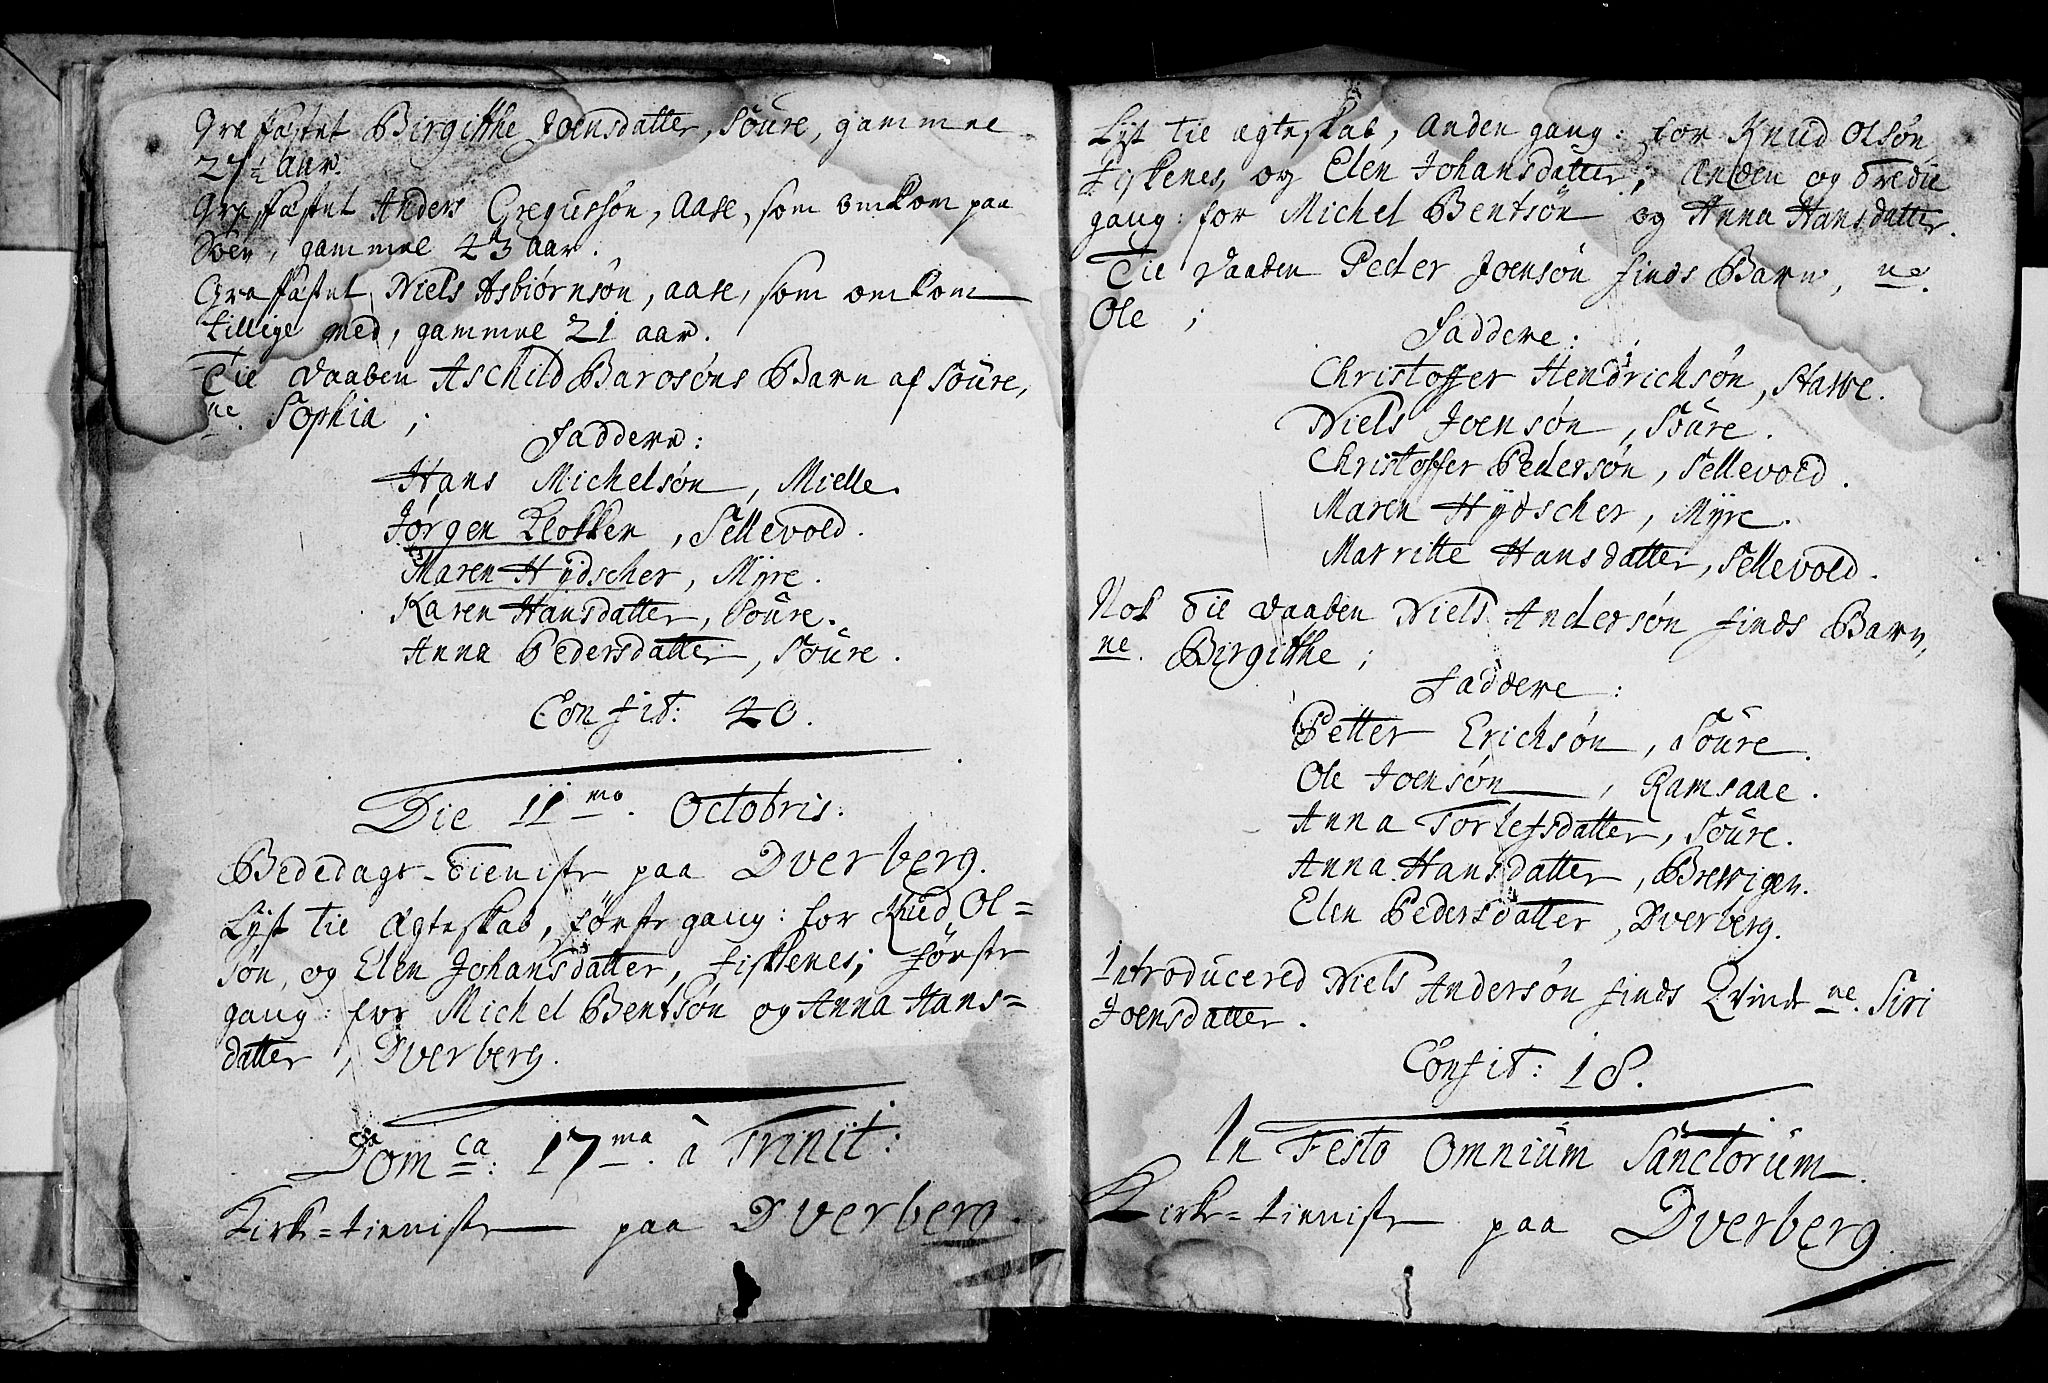 Graffæstet Birgitthe Joensdatter, Soure, gammel
27½ aar.
Graffæstet Anders Gregusøn, Aase, som omkom paa
Søen, gammel 43 aar.
Graffæstet Niels Asbiørnsøn, Aase, som omkom
tillige med, gammel 21 aar.
Til Daaben Aschild Barosøns Barn af Soure,
ne. Sophia;
Faddere:
Hans Michelsøn, Mielle.
Jørgen Klokker, Sellevold.
Maren Hÿdscher, Mÿre.
Karen Hansdatter, Soure.
Anna Pedersdatter, Soure.
Confit: 40.
Die 11mo. Octobris.
Bededags-tieniste paa Dverberg.
Lÿst til Ægteskab, første gang: for Knud Ol=
søn, og Elen Johansdatter, Fiskenes; første
gang: for Michel Bentsøn og Anna Hans=
datter, Dverberg.
Domca: 17ma. à Trinit:
Kirke=tieniste paa Dverberg.
Lÿst til ægteskab, anden gang: for Knud Olsøn
Fiskenes, og Elen Johansdatter; anden og tredie
gang: for Michel Bentsøn og Anna Hansdatter.
Til Daaben Peder Joensøn Finds Barn, ne.
Ole;
Faddere:
Christoffer Hendrichsøn, Stawe.
Niels Joensøn, Soure.
Christoffer Pedersøn, Sellevold.
Maren Hÿdscher, Mÿre.
Marritte Hansdatter, Sellevold.
Nok til Daaben Niels Andersøn Finds Barn,
ne. Birgitthe;
Faddere:
Petter Erichsøn, Soure.
Ole Joensøn, Ramsaae.
Anna Torlefsdatter, Soure.
Anna Hansdatter, Brewigen.
Elen Pedersdatter, Dverberg.
Introducered Niels Andersøn Finds Qvinde ne. Siri
Joensdatter.
Confit: 18.
In Festo Omnium Sanctorum.
Kirke=tieniste paa Dverberg.